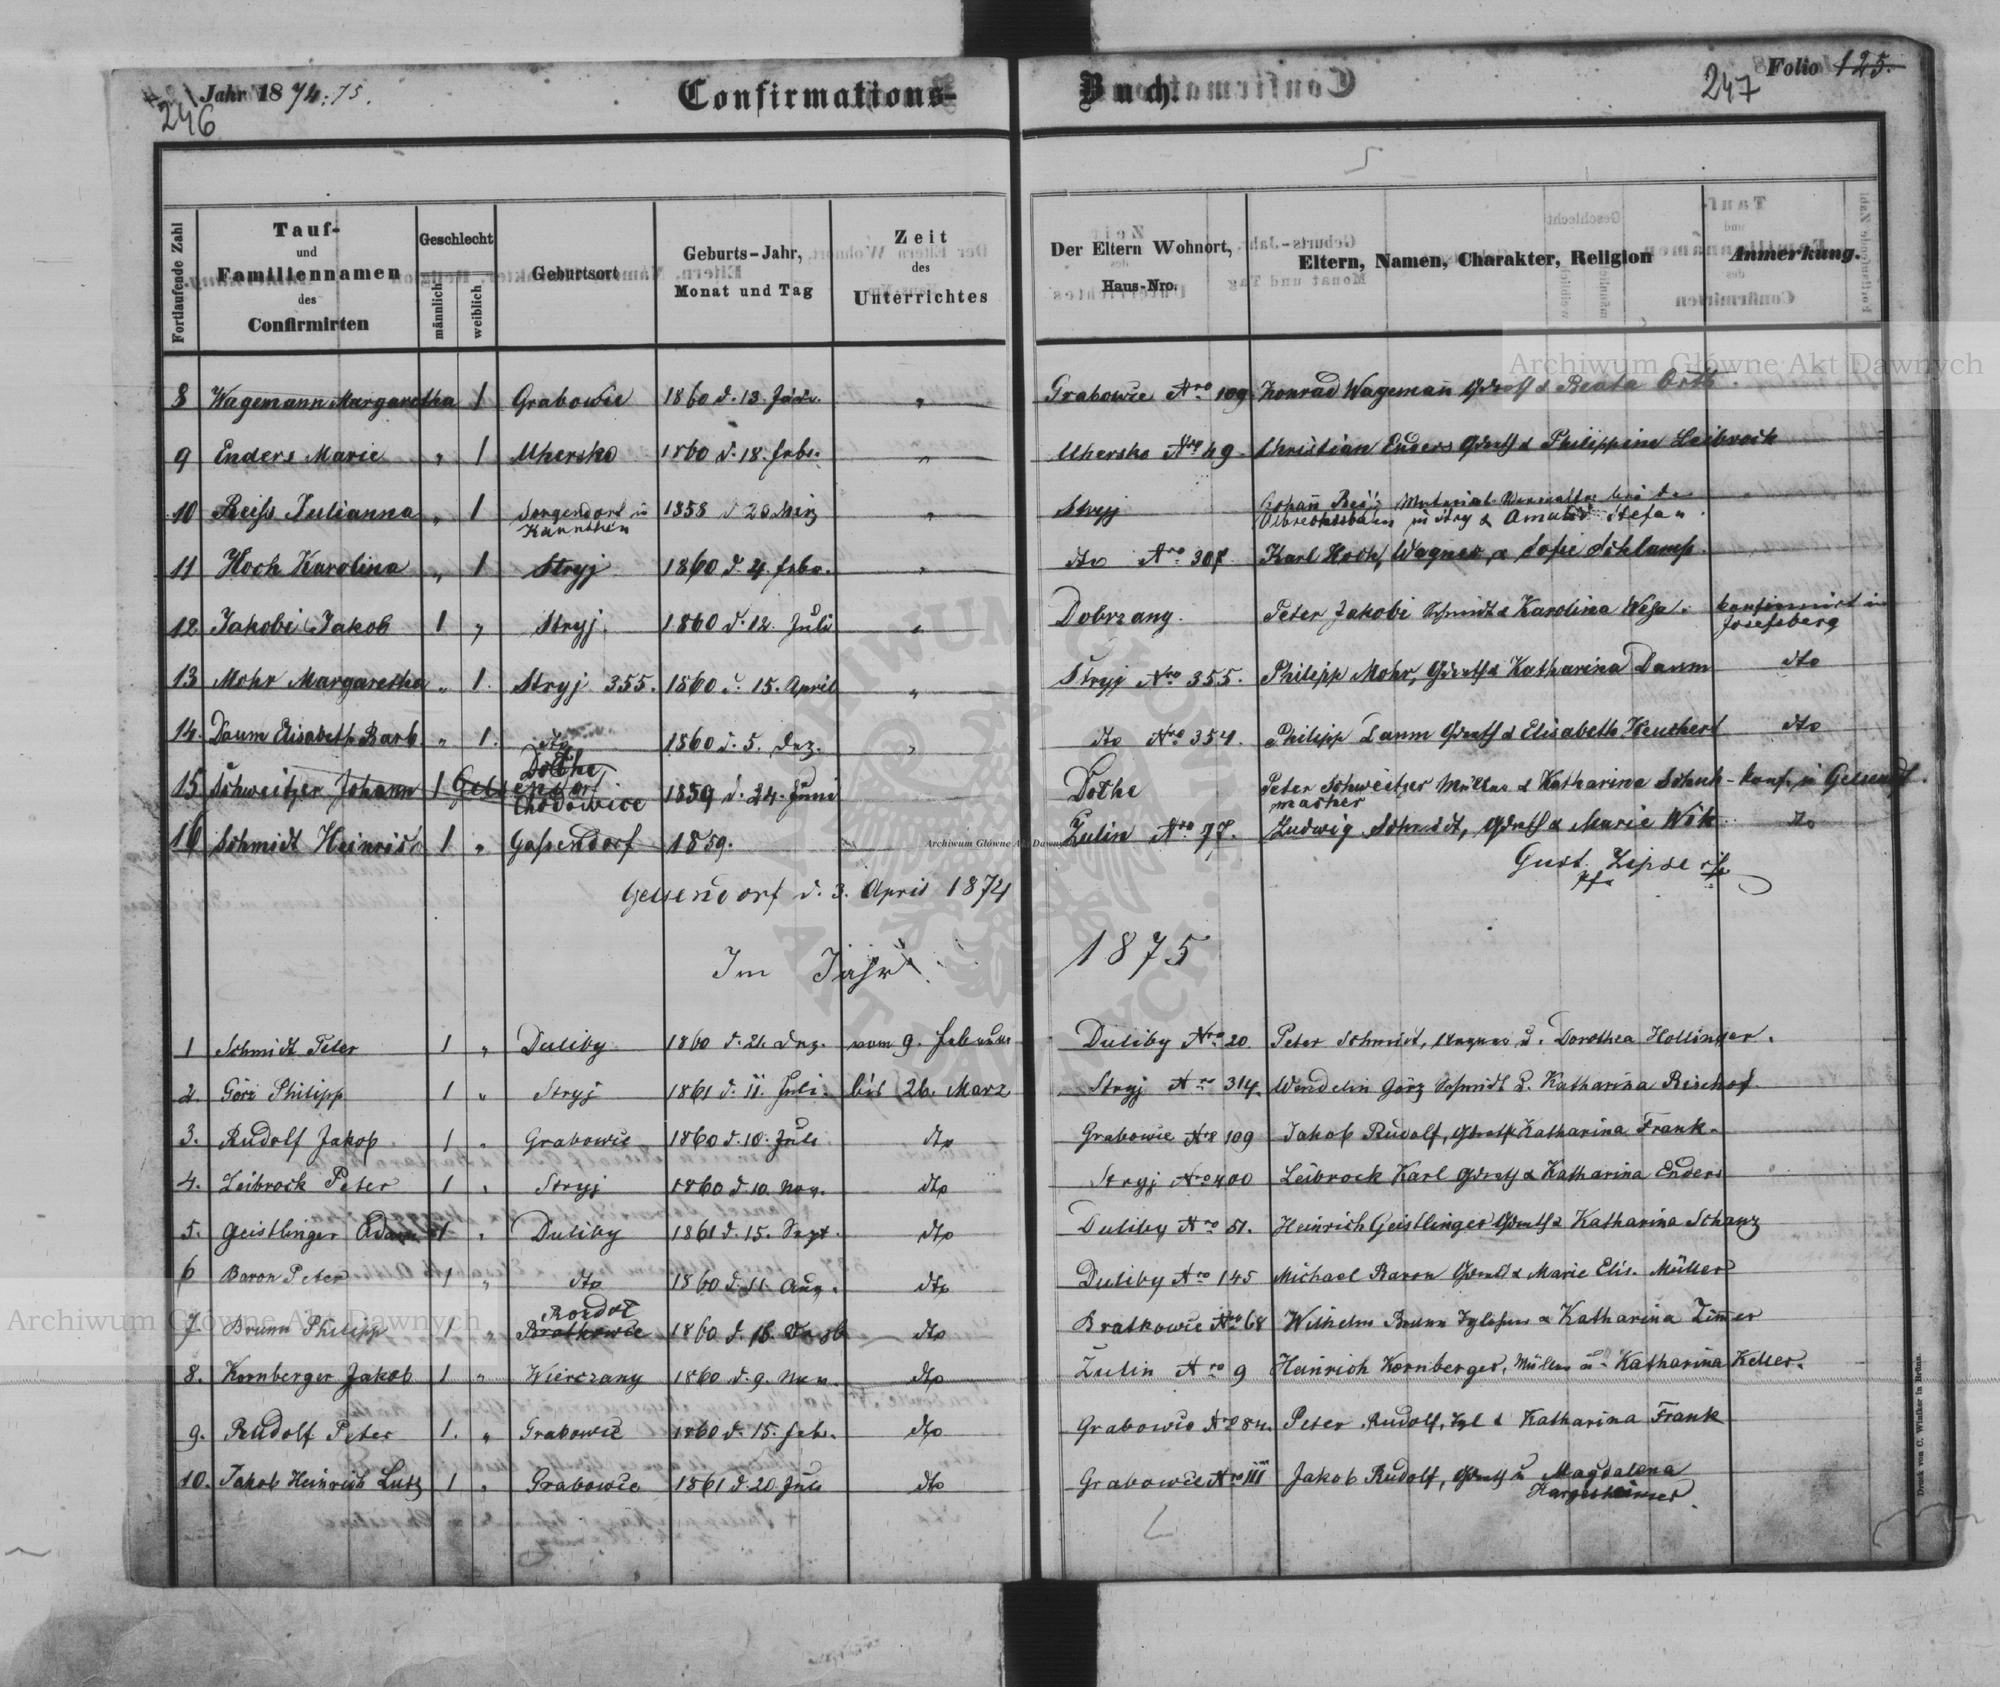 Jahr 1874:75.
246
Confirmations-Buch.
247
Folio 125.
Fortlaufende Zahl
Tauf- und Familiennamen des Confirmirten
Geschlecht
männlich
weiblich
Geburtsort
Geburts-Jahr, Monat und Tag
Zeit des Unterrichtes
Der Eltern Wohnort, Haus-Nro.
Eltern, Namen, Charakter, Religion
Anmerkung.
8 Wagemann Margaretha 1 Grabowie 1860 d. 13. " Grabowie Nro 109 Konrad Wagemann & Beata Orth
9 Enders Marie " 1 Uhersko 1860 d. 18. Febr. " Uhersko Nro 49. Christian Enders & Philippine Leibrock
10 Reiss Julianna " 1 Sorgendorf in Kärnthen 1858 d 23 März " Stryj Johann Reiss Material Verwalter
Albrechtsbahn in Stry & Stefan
11 Hoch Karolina " 1 Stryj 1860 d. 4. Febr. " dto Nro 307 Karl Hoch, Wagner & Sofie Schlamp.
12 Jakobi Jakob 1 " Stryj. 1860 d. 12. Juli " Dobrzany. Peter Jakobi Schmidt & Karolina konfirmirt in Josefsberg
13 Mohr Margaretha " 1. Stryj 355. 1860 d. 15. April " Stryj Nro 355. Philipp Mohr, & Katharina Daum dto
14. Daum Elisabeth Barb. " 1. dto 1860 d. 5. Dez. " dto Nro 354. Philipp Daum & Elisabeth Heuchert dto
15 Schweitzer Johann 1 Gelsendorf Dothe Chodowice 1859 d. 24. Juni Dothe Peter Schweitzer Müller & Katharina Schuhmacher konf. in Gelsendf.
16 Schmidt Heinrich 1 " Gassendorf 1859. Zulin Nro 77. Ludwig Schmidt, & Marie Wik dto
Gust. Zipse
Pfr
Gelsendorf d. 3. April 1874
Im Jahr 1875
1 Schmidt Peter 1 " Duliby 1860 d. 21. Dez. vom 9. Februar Duliby Nro 20 Peter Schmidt, Wagner u. Dorothea Hollinger.
2. Görz Philipp 1 " Stryj 1861 d. 11. Juli. bis 26. März Stryj Nro 314. Wendelin Görz Schmidt u. Katharina Bischof.
3. Rudolf Jakob 1 " Grabowie 1860 d. 10. Juli dto Grabowie Nro 109 Jakob Rudolf, Katharina Frank.
4. Leibrock Peter 1 " Stryj 1860 d. 10. Nov. dto Stryj Nro 400 Leibrock Karl & Katharina Enders
5. Geistlinger Adam 1 " Duliby 1861 d. 15. Sept. dto Duliby Nro 51. Heinrich Geistlinger & Katharina Schanz
6 Baron Peter 1 " dto 1860 d. 11. Aug. dto Duliby Nro 145 Michael Baron & Marie Elis. Müller
7. Brunn Philipp 1 " Bratkowce 1860 d. 16. dto Bratkowce Nro 68 Wilhelm Brunn & Katharina Zimmer
8. Kornberger Jakob 1. " Wierczany 1860 d. 9. Nov. dto Zulin Nro 9 Heinrich Kornberger, Müller u. Katharina Keller.
9. Rudolf Peter 1. " Grabowie 1860 d. 15. Febr. dto Grabowie Nro 84. Peter Rudolf, & Katharina Frank
10. Jakob Heinrich Lutz 1 " Grabowie 1861 d. 20. Juli dto Grabowie Nro III Jakob Rudolf, u Magdalena
Hargesheimer.
Druck von C. Winiker in Brünn.
Archiwum Główne Akt Dawnych
Archiwum Główne Akt Dawnych
Archiwum Główne Akt Dawnych
ARCHIWUM GŁÓWNE AKT DAWNYCH